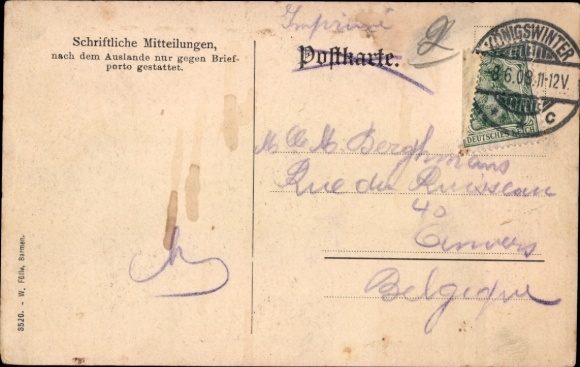 Imprimé
2
Schriftliche Mitteilungen,
nach dem Auslande nur gegen Brief-
porto gestattet.
Postkarte.
KÖNIGSWINTER
8.6.09.11-12V.
c
DEUTSCHES REICH
M. & M. Berghmans
Rue du Ruisseau
40
Anvers
Belgique
8520. - W. Fülle, Barmen.